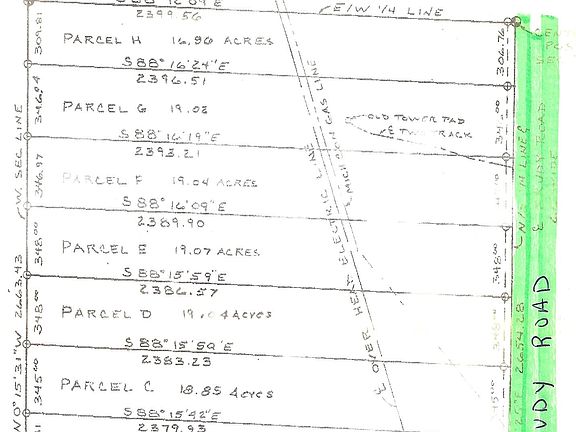 S 88° 16' 09" E
2399.56
E/W 1/4 LINE
309.81
PARCEL H 16.96 ACRES
306.76
S 88° 16' 24" E
2396.51
PARCEL G 19.02
OLD TOWER PAD
& TWO TRACK
S 88° 16' 19" E
2393.21
346.97
PARCEL F 19.04 ACRES
S 88° 16' 09" E
2389.90
348.00
PARCEL E 19.07 ACRES
348.00
S 88° 15' 59" E
2386.57
348.00
PARCEL D 19.04 Acres
S 88° 15' 50" E
2383.23
345.00
PARCEL C 18.85 Acres
S 88° 15' 42" E
2379.93
W. SEC LINE
N 0° 15' 31" W 2663.43
℄ OVER HEAD ELECTRIC LINE
MICHCON GAS LINE
N/S 1/4 LINE &
2654.28
UDY ROAD